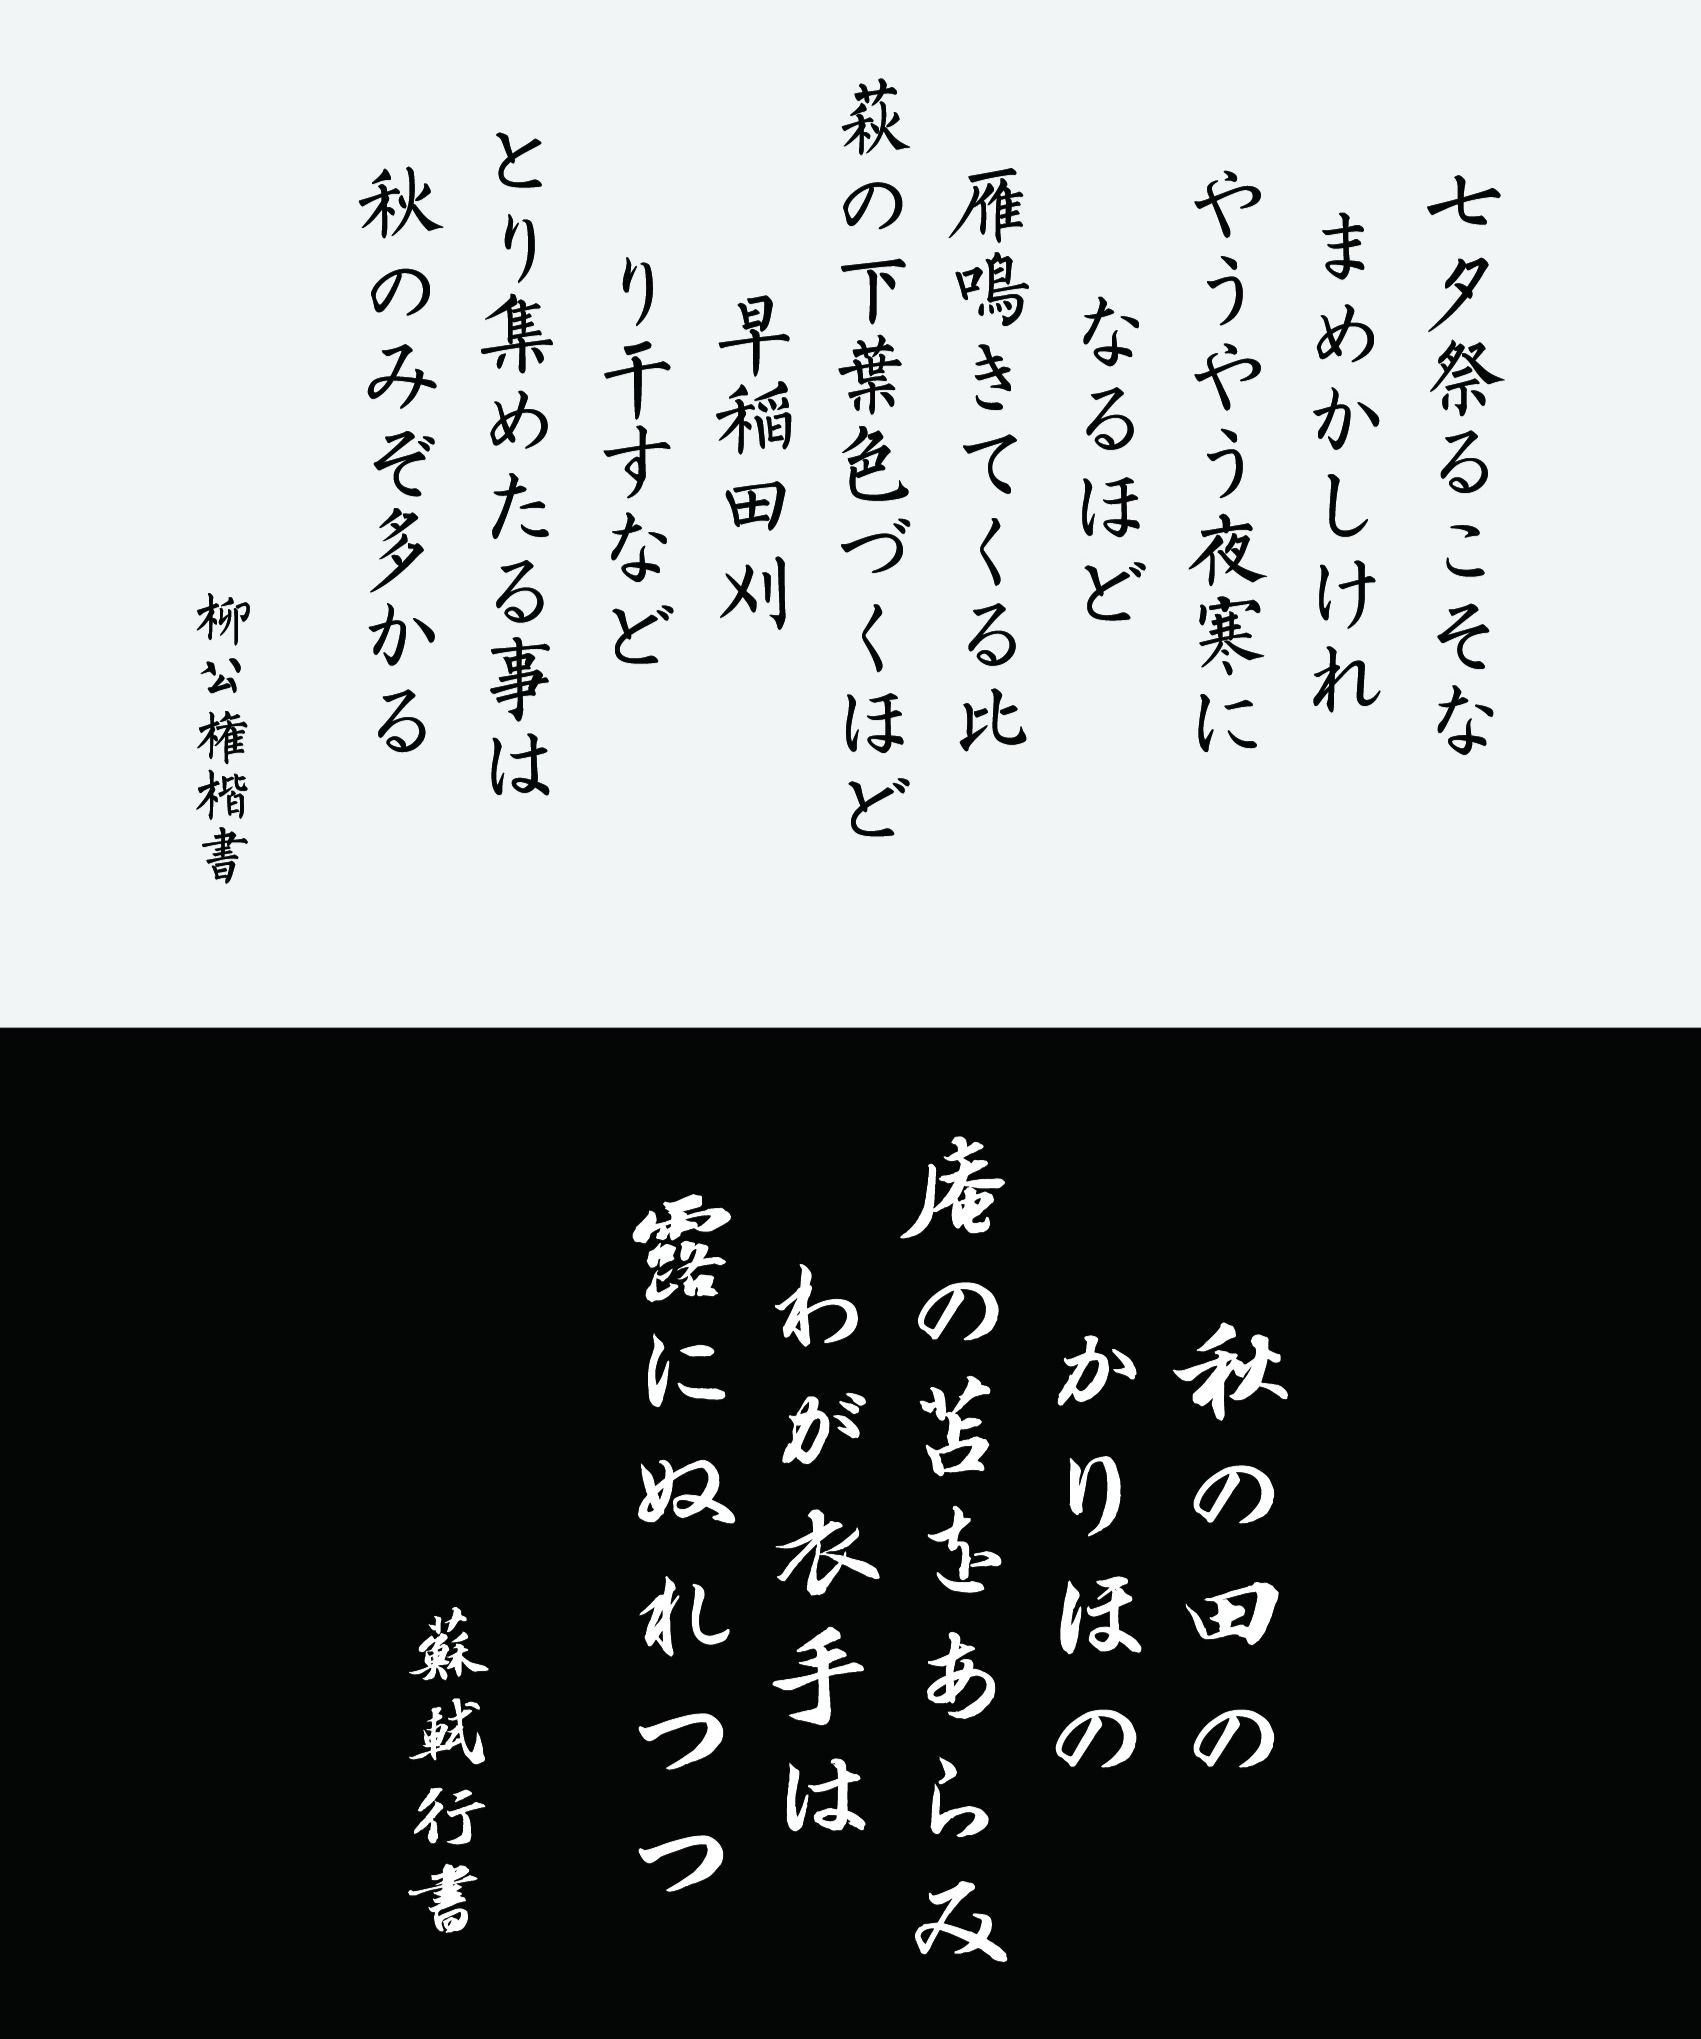 七夕祭るこそな
まめかしけれ
やうやう夜寒に
なるほど
雁鳴きてくる比
萩の下葉色づくほど
早稲田刈
り干すなど
とり集めたる事は
秋のみぞ多かる
柳公権楷書
秋の田の
かりほの
庵の苫をあらみ
わが衣手は
露にぬれつつ
蘇軾行書